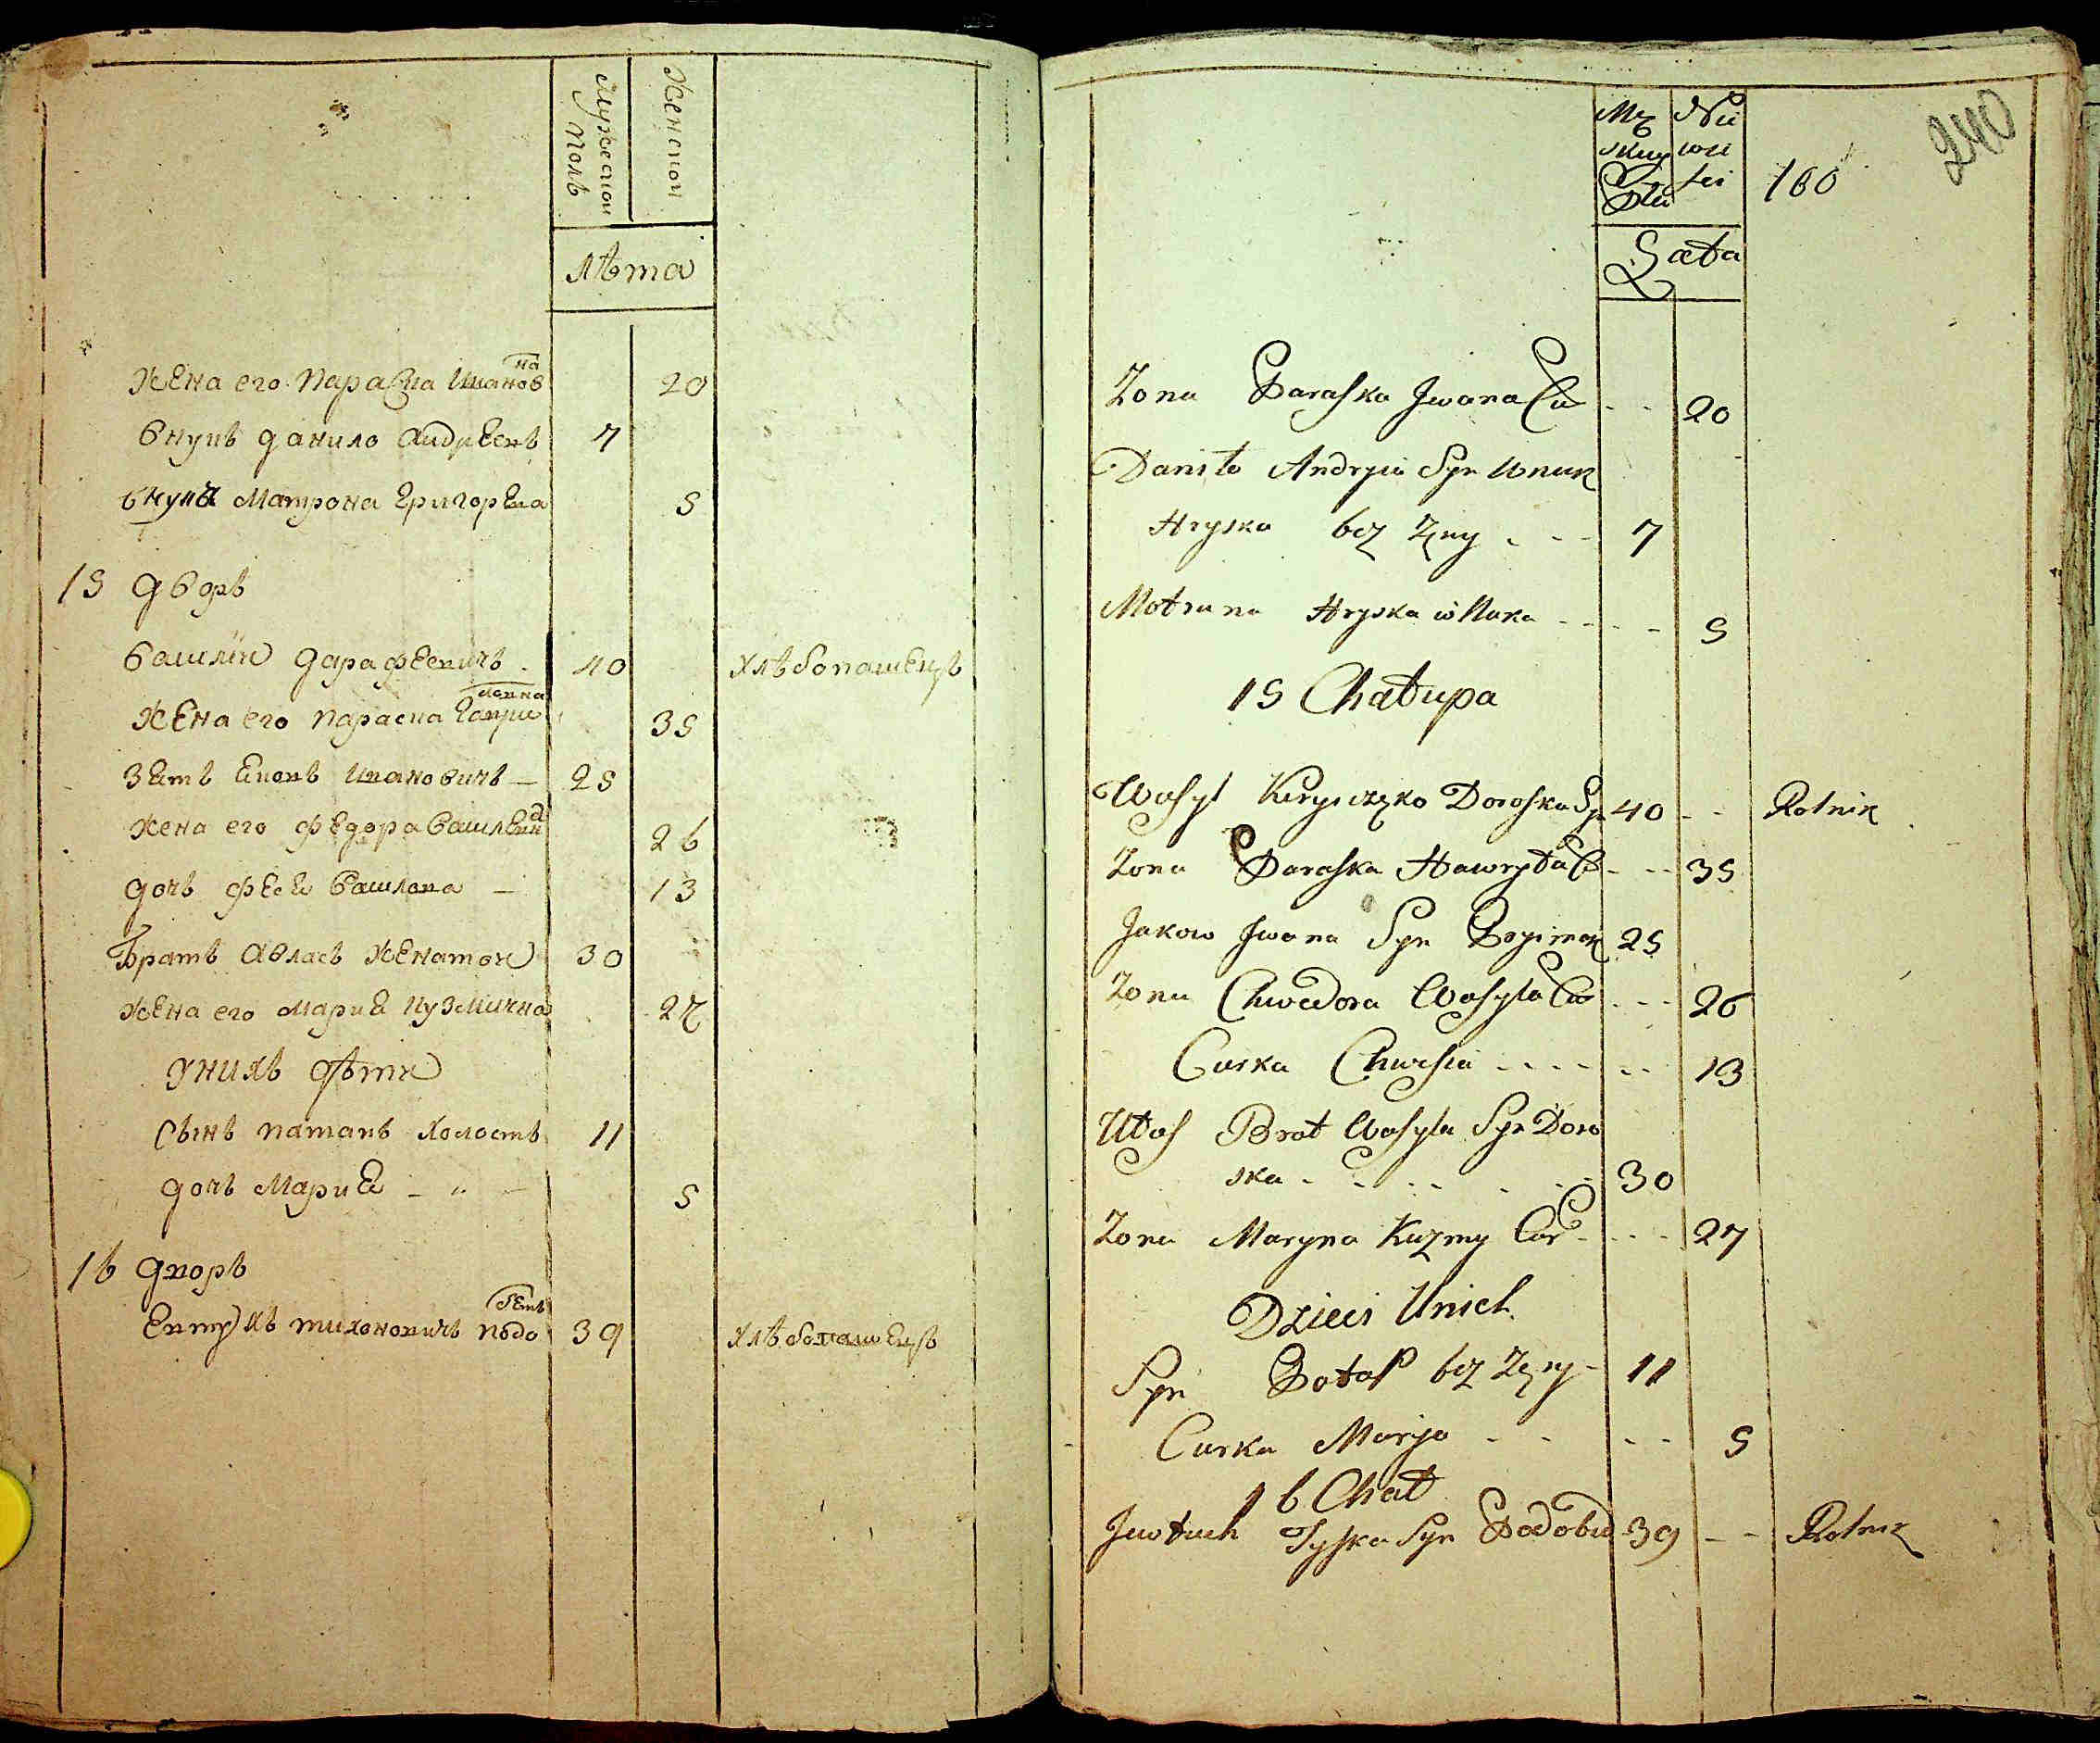 Мужескои Женскои
полъ
лѣта
Жена его Параска Иванов на 20
внукъ данило Андрѣевъ 7
внука Матрона Григорева 5
15 дворъ
Василий дарафеевичъ 40 хлѣбопашецъ
Жена его параска Гаври ловна 35
Зять Яковъ Ивановичъ 25
жена его федора Василевн а 26
дочь феся Василева 13
Братъ Авласъ женатои 30
жена его Мария Кузмична 27
у нихъ дѣти
Сынъ патапъ холостъ 11
дочь Мария 5
16 дворъ
Евтухъ тихоновичъ подо бетъ 39 хлѣбопашецъ
240
Mę Nie
skiey wie
Płci sci 160
Lata
Zona Paraska Jwana Cu 20
Daniło Andryia Syn Wnuk
Hryska bez Zeny 7
Motruna Hryska wnuka 5
15 Chałupa
Wasyl Kiryiczęko Doroska Sy 40 Rolnik
Zona Paraska Hawryła C 35
Jakow Jwana Syn Pryimak 25
Zona Chwedora Wasyla Cur 26
Curka Chwesia 13
Ułas Brat Wasyla Syn Doro
ska 30
Zona Maryna Kuzmy Cur 27
Dzieci Unich
Syn Potap bez Zeny 11
Curka Marya 5
16 Chał
Jewtuch Tyska Syn Podobied 39 Rolnik